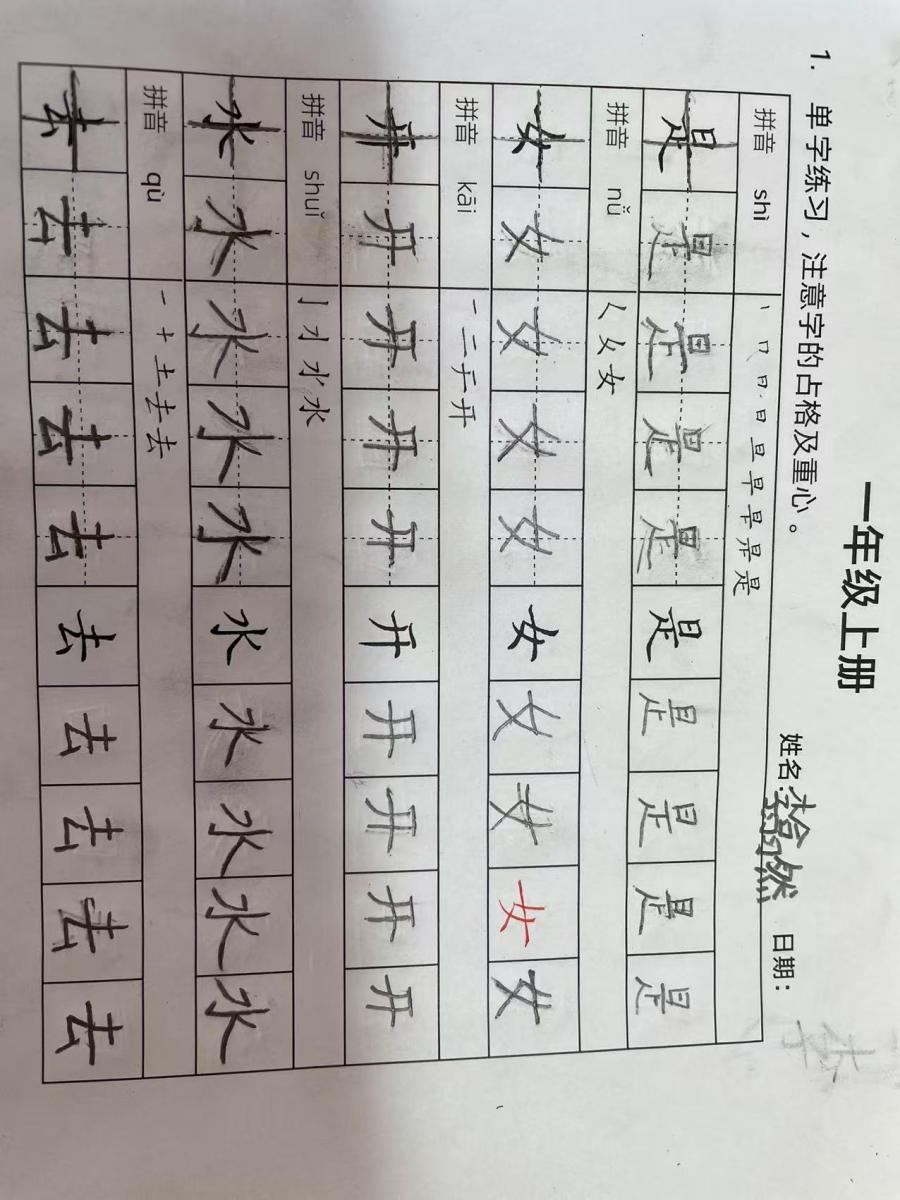 一年级上册
姓名: 日期:
1. 单字练习，注意字的占格及重心。
拼音 shì 丨 口 日 日 旦 早 早 是 是
是 是 是 是 是 是 是 是 是 是
拼音 nǚ 女 女
女 女 女 女 女 女 女 女 女 女
拼音 kāi 一 二 于 开
开 开 开 开 开 开 开 开 开 开
拼音 shuǐ 亅 水
水 水 水 水 水 水 水 水 水 水
拼音 qù 一 十 土 去 去
去 去 去 去 去 去 去 去 去 去